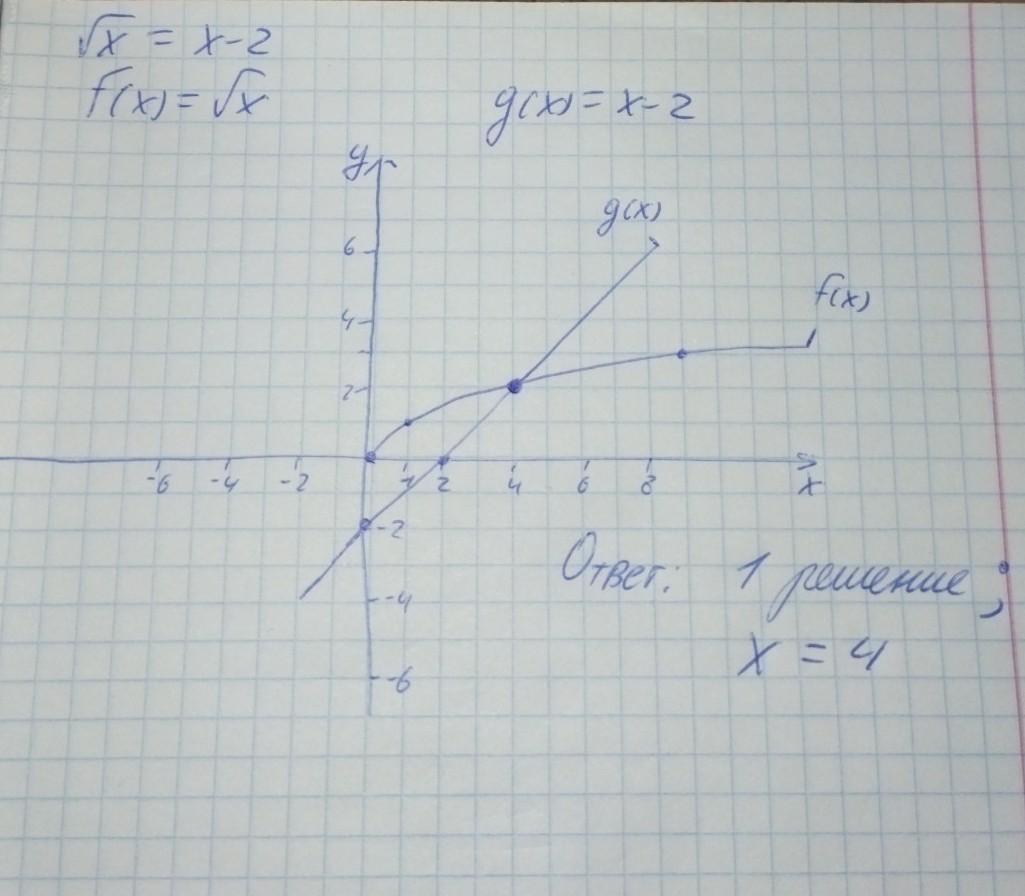 √x = x-2
f(x) = √x g(x) = x-2
y
g(x)
6
f(x)
4
2
-6 -4 -2 1 2 4 6 8 x
-2
Ответ: 1 решение;
-4
x = 4
-6